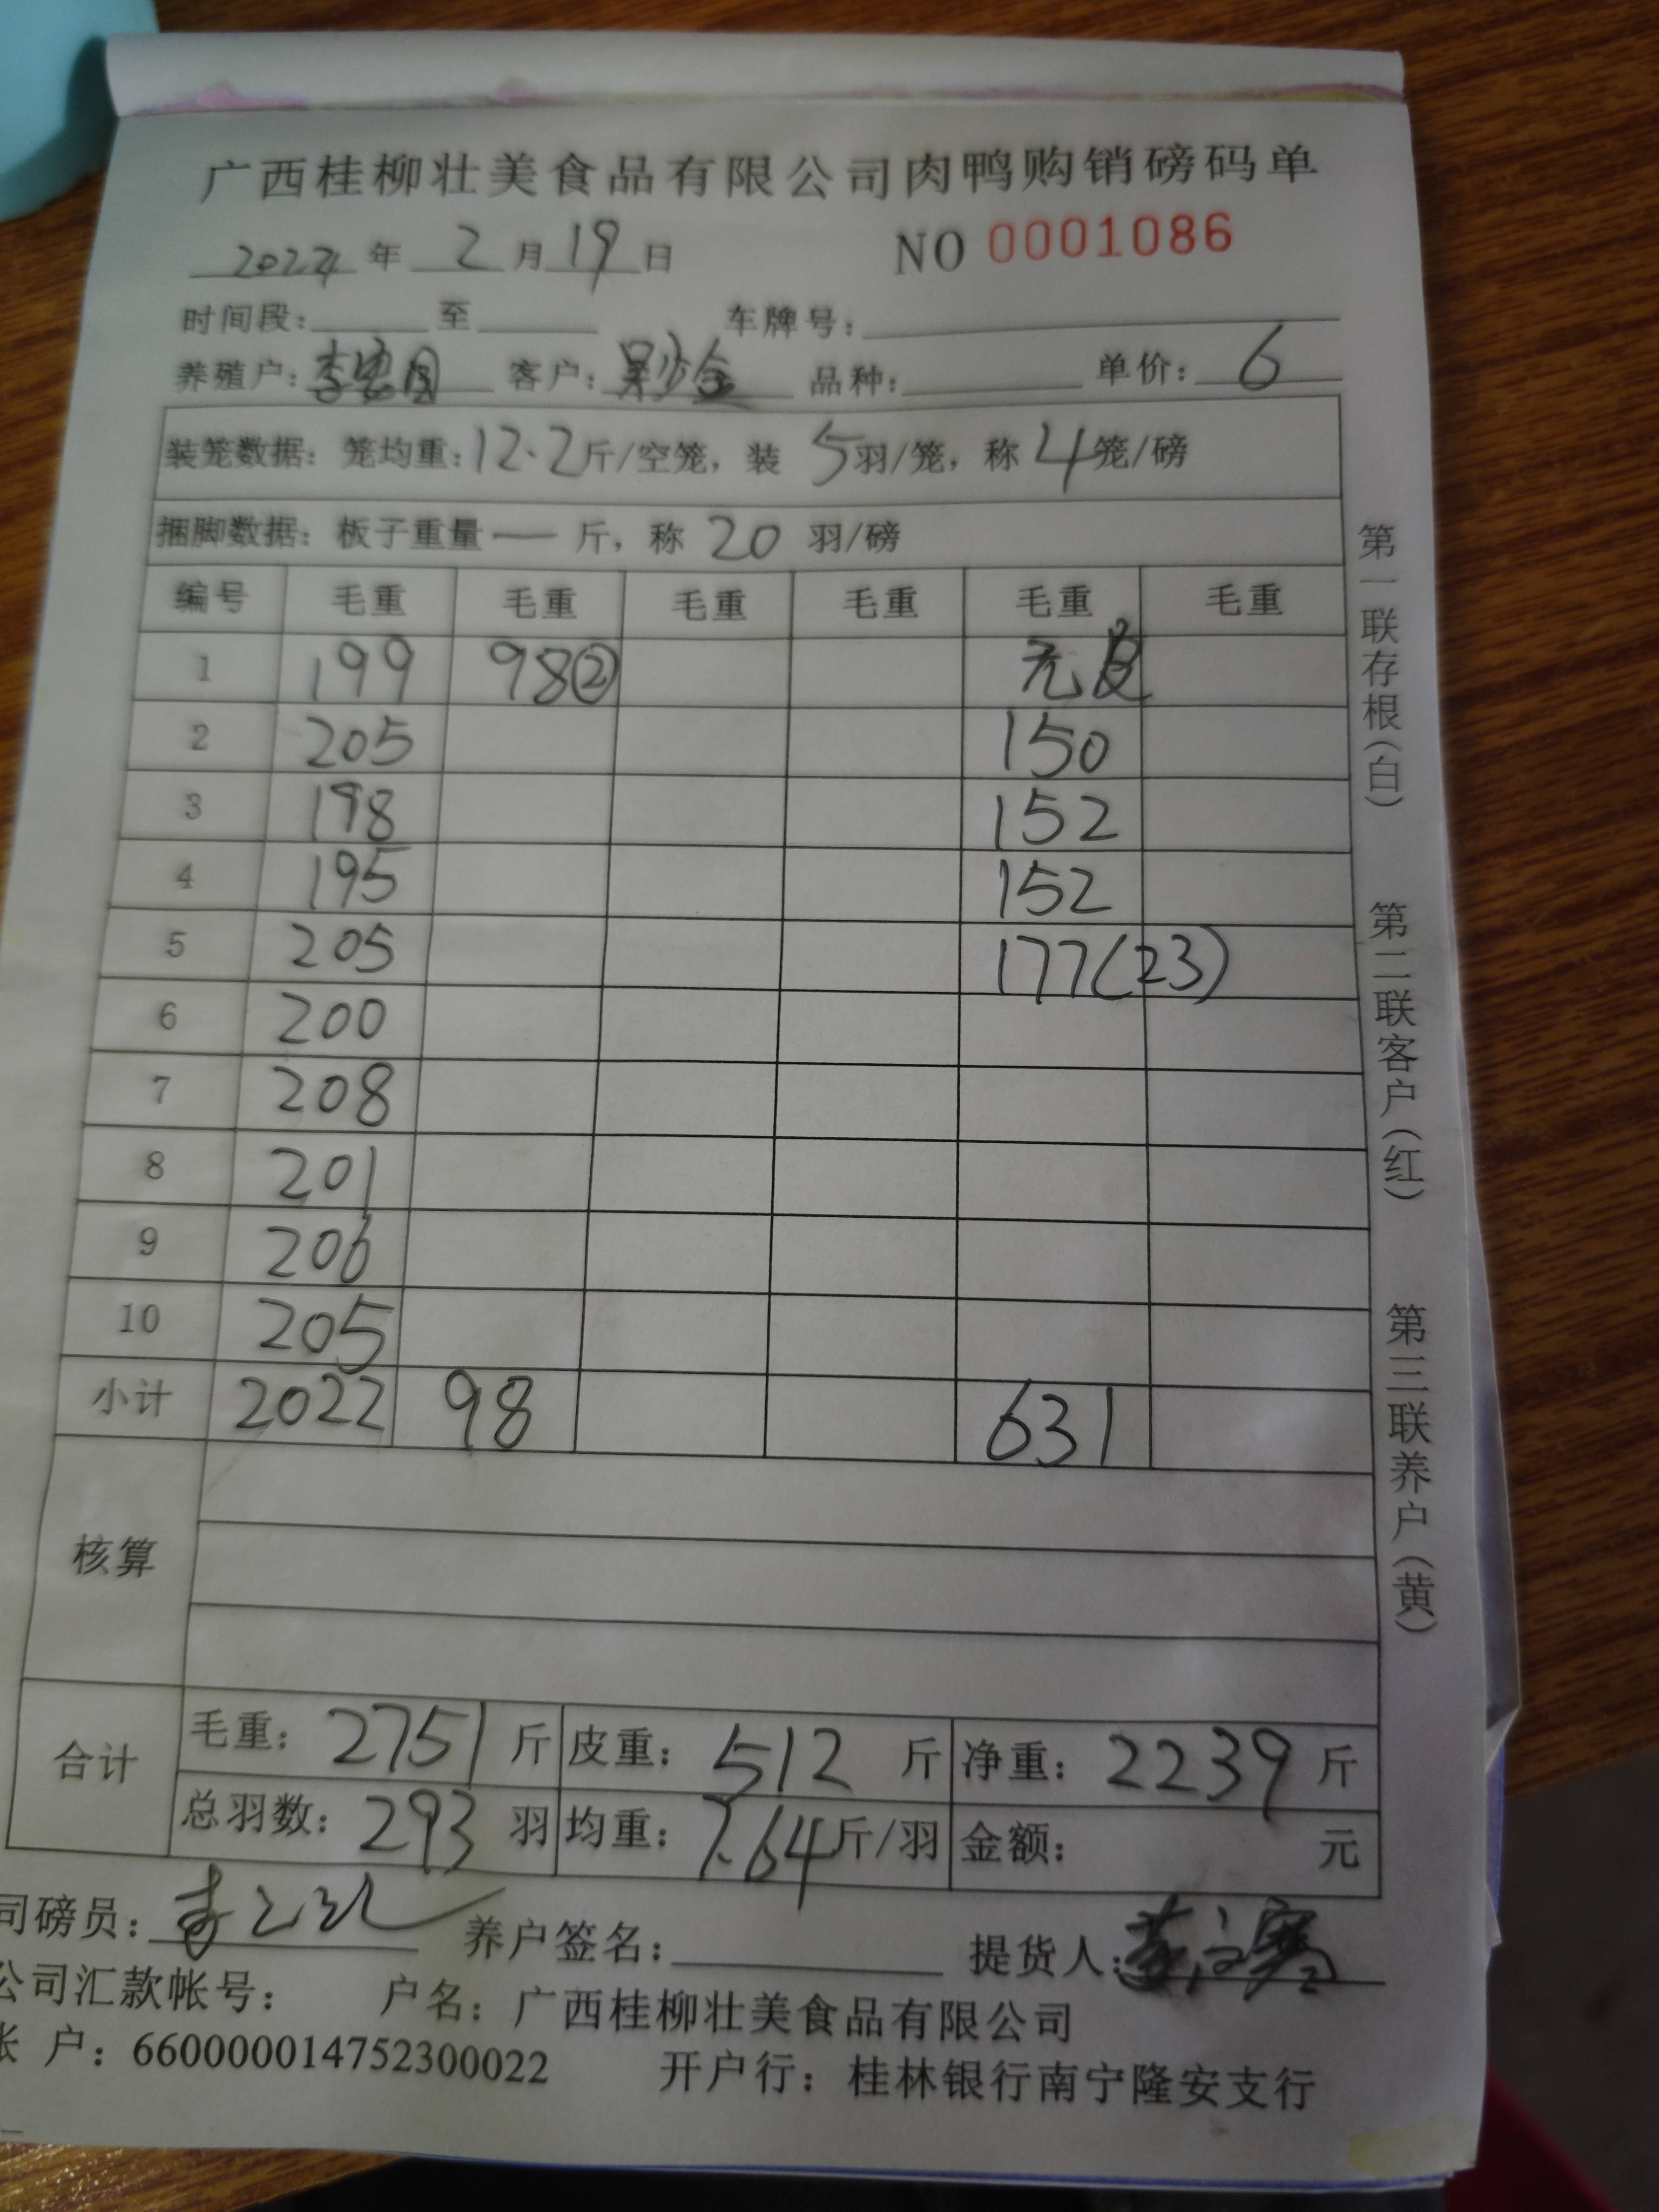 广西桂柳壮美食品有限公司肉鸭购销磅码单
年 2 月 19 日 NO 0001086
时间段: 至 车牌号:
养殖户: 李 客户: 品种: 单价: 6
装笼数据: 笼均重: 12.2 斤/空笼, 装 5 羽/笼, 称 4 笼/磅
捆脚数据: 板子重量 — 斤, 称 20 羽/磅
编号 毛重 毛重 毛重 毛重 毛重 毛重
1 199 98② 无皮
2 205 150
3 198 152
4 195 152
5 205 177(23)
6 200
7 208
8 201
9 206
10 205
小计 2022 98 631
核算
合计 毛重: 2751 斤 皮重: 512 斤 净重: 2239 斤
总羽数: 293 羽 均重: 7.64 斤/羽 金额: 元
司磅员: 养户签名: 提货人:
公司汇款帐号: 户名: 广西桂柳壮美食品有限公司
帐 户: 660000014752300022 开户行: 桂林银行南宁隆安支行
第一联存根(白)
第二联客户(红)
第三联养户(黄)